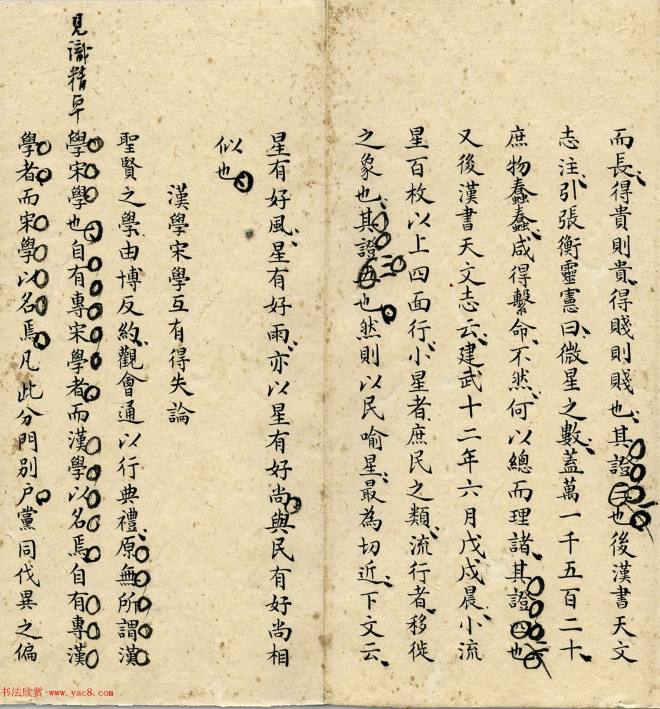 而長得貴則貴得賤則賤也其證三也後漢書天文
志注引張衡靈憲曰微星之數蓋萬一千五百二十
庶物蠢蠢咸得繫命不然何以總而理諸其證四也
又後漢書天文志云建武十二年六月戊戌晨小流
星百枚以上四面行小星者庶民之類流行者移徙
之象也其證五也然則以民喻星最為切近下文云
星有好風星有好雨亦以星有好尚與民有好尚相
似也
漢學宋學互有得失論
聖賢之學由博反約觀會通以行典禮原無所謂漢
學宋學也自有專宋學者而漢學以名焉自有專漢
學者而宋學以名焉凡此分門別戶黨同伐異之偏
見識精卓
书法欣赏·www.yac8.com